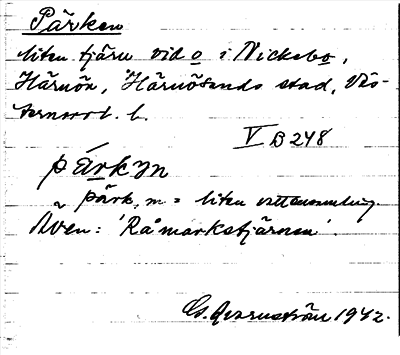 Pärken
liten tjärn vid o i Nickebo,
Härnön, Härnösands stad, Väs-
ternorrl. l.
V B 248
pärkyn
pärk, m = liten vattensamling.
Även: 'Råmarkstjärnen'.
G. Qvarnström 1942.